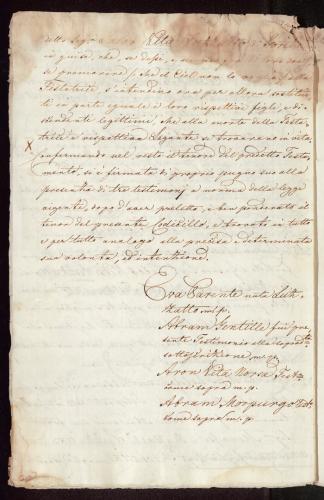 in guisa, che se dopo
se premorire /: che il Ciel non lo voglia :/ alla
Testatrice, s'intendino ora per allora sostitu-
ite in parte eguale i loro rispettivi figli, e di-
scendenti legittimi, che alla morte della Testa-
trice rispettiva Signate si troveranno in vita,
X confermando nel resto il tenore del predetto Testa-
mento, si è firmata di proprio pugno suo alla
presenza di tre testimonj a norma della legge
vigente, dopo d'aver preletto, e ben ponderato il
tenor del presente Codicillo, e trovato in tutto
e per tutto analogo alla precisa e determinata
sua volontà, ed intenzione.
Eva Parente nata Luz-
zatto m. p.
Abram Gentille fui pre-
sente Testimonio alla segnata
sottoscrizione m. p.
Aron Vita Norsa Testi-
come sopra m. p.
Abram Morpurgo Test.
come sopra m. p.